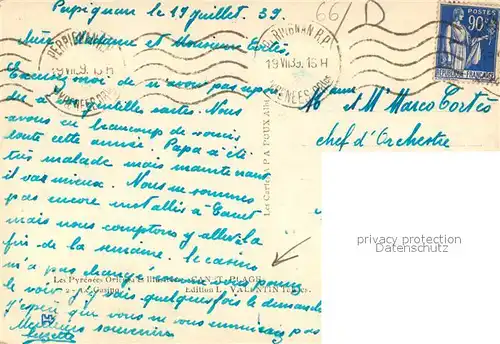 Perpignan le 19 juillet. 39.
66
D
Chère Madame et Monsieur Cortès,
PERPIGNAN R.P.
19 VII 39. 15 H
PYRENEES ORles
PERPIGNAN R.P.
19 VII 39. 15 H
PYRENEES ORles
POSTES
90c
REPUBLIQUE FRANÇAISE
Excusez moi de n'avoir pas répon
du à vos gentilles cartes. Nous
avons eu beaucoup de soucis
toute cette année. Papa a été
très malade mais maintenant
il va mieux. Nous ne sommes
pas encore installés à Canet
mais nous comptons y aller à la
fin de la semaine. Le casino
n'a pas changé vous pouvez
le voir j'y vais quelquefois le dimanche
J'espère que vous ne vous ennuyez pas
Meilleurs souvenirs
Mme et Mr Marco Cortès
chef d'Orchestre
Les Cartes A POUX Albi
Les Pyrénées Orient. Illustrées CANET-PLAGE
Casino Edition L. VALENTIN
privacy protection
Datenschutz